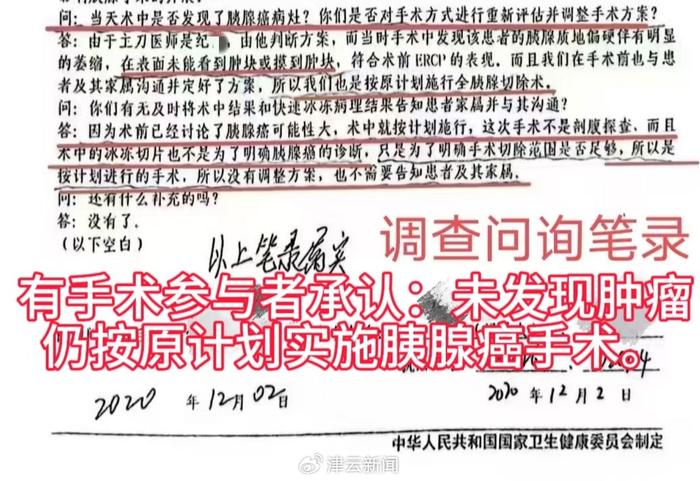 问：当天术中是否发现了胰腺癌病灶？你们是否对手术方式进行重新评估并调整手术方案？
答：由于主刀医师是纪 由他判断方案，而当时手术中发现该患者的胰腺质地偏硬伴有明显
的萎缩，在表面未能看到肿块或摸到肿块，符合术前 ERCP 的表现。而且我们在手术前也与患
者及其家属沟通并定好了方案，所以我们也是按原计划施行全胰腺切除术。
问：你们有无及时将术中结果和快速冰冻病理结果告知患者家属并与其沟通？
答：因为术前已经讨论了胰腺癌可能性大，术中就按计划施行，这次手术不是剖腹探查，而且
术中的冰冻切片也不是为了明确胰腺癌的诊断，只是为了明确手术切除范围是否足够，所以是
按计划进行的手术，所以没有调整方案，也不需要告知患者及其家属。
问：还有什么补充的吗？
答：没有了。
（以下空白）
以上笔录属实
调查问询笔录
有手术参与者承认：未发现肿瘤
仍按原计划实施胰腺癌手术。
2020 年 12月 02日
2020 年 12 月 2 日
中华人民共和国国家卫生健康委员会制定
津云新闻